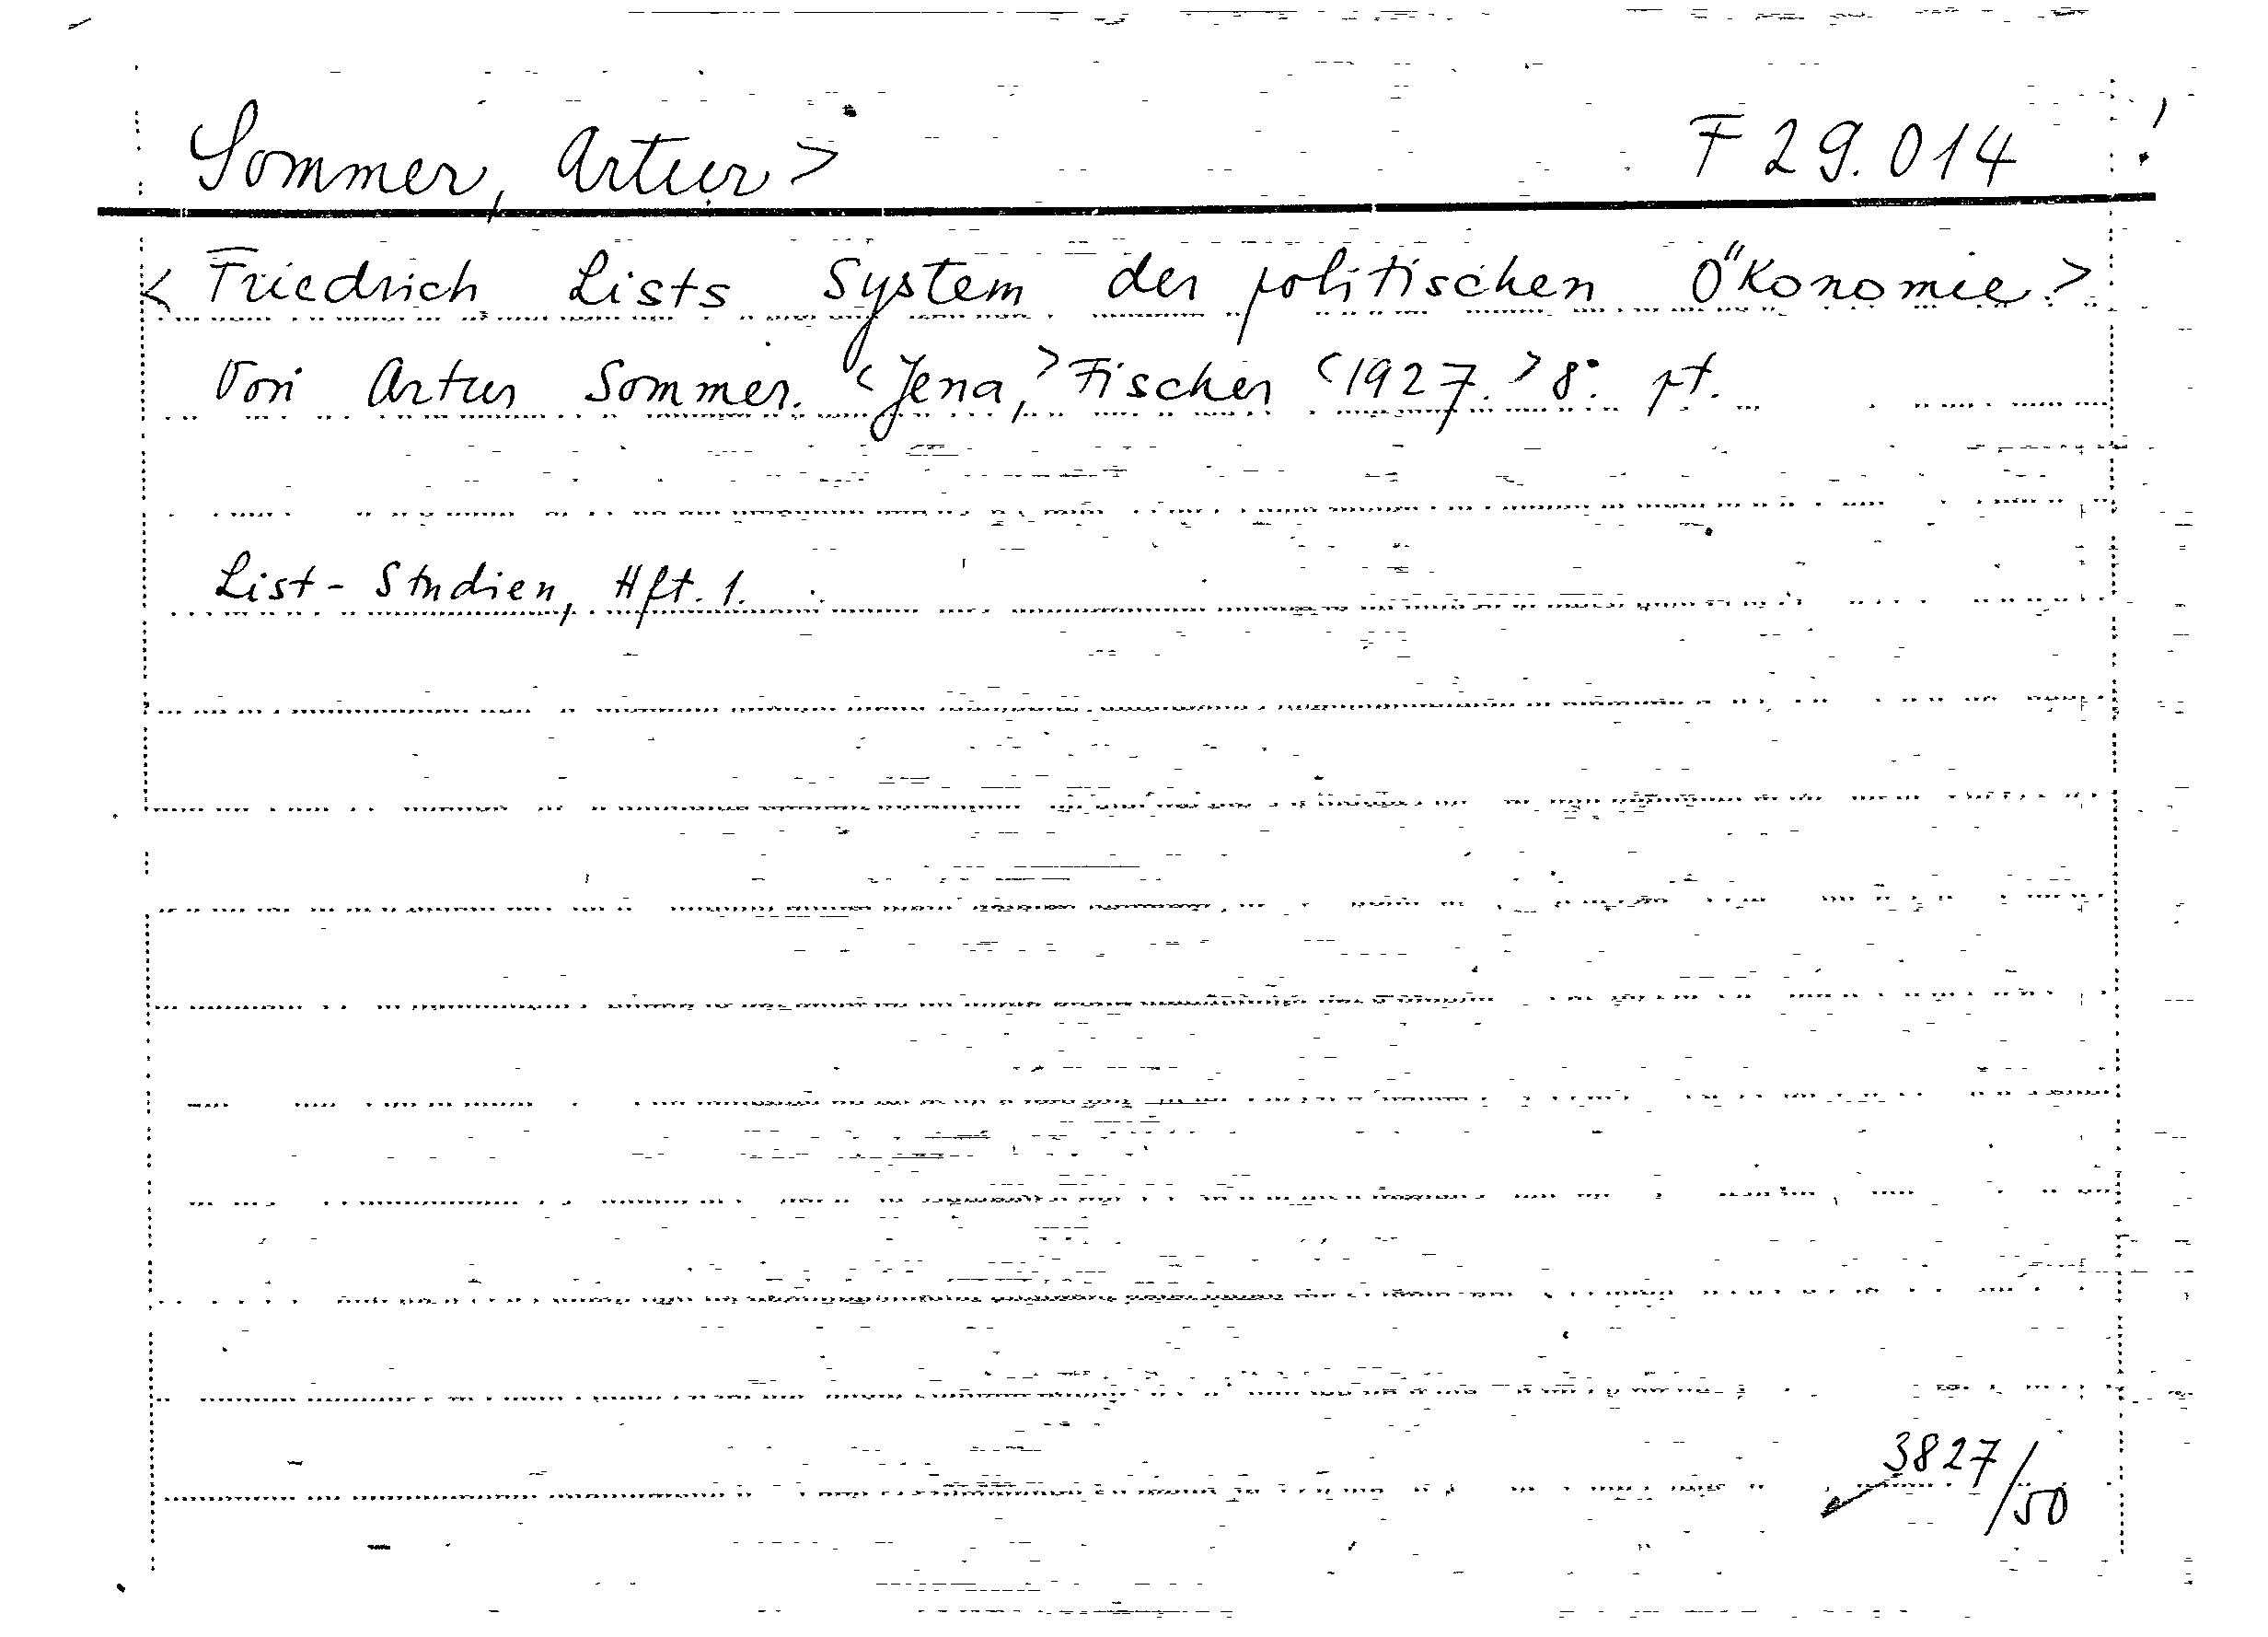 Sommer, Artur> F 29.014 !
< Friedrich Lists System der politischen Ökonomie.>
Von Artur Sommer. <Jena,> Fischer <1927.> 8°. pt.
List-Studien, Hft. 1.
3827/50